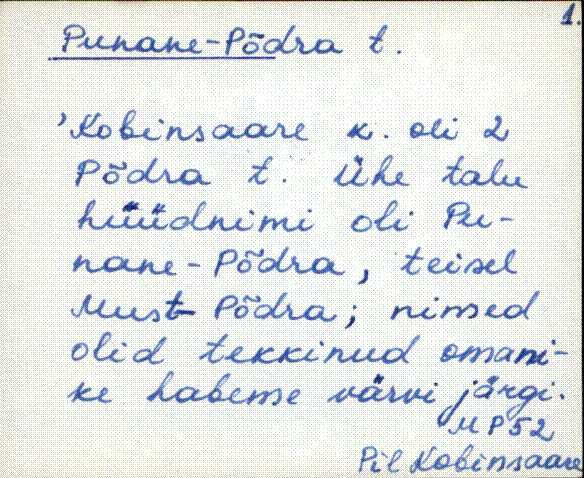 1.
Punane-Põdra t.
'Kobinsaare k. oli 2
Põdra t. Ühe talu
hüüdnimi oli Pu-
nane-Põdra, teisel
Must-Põdra; nimed
olid tekkinud omani-
ke habeme värvi järgi.
MP52
Pil Kobinsaare